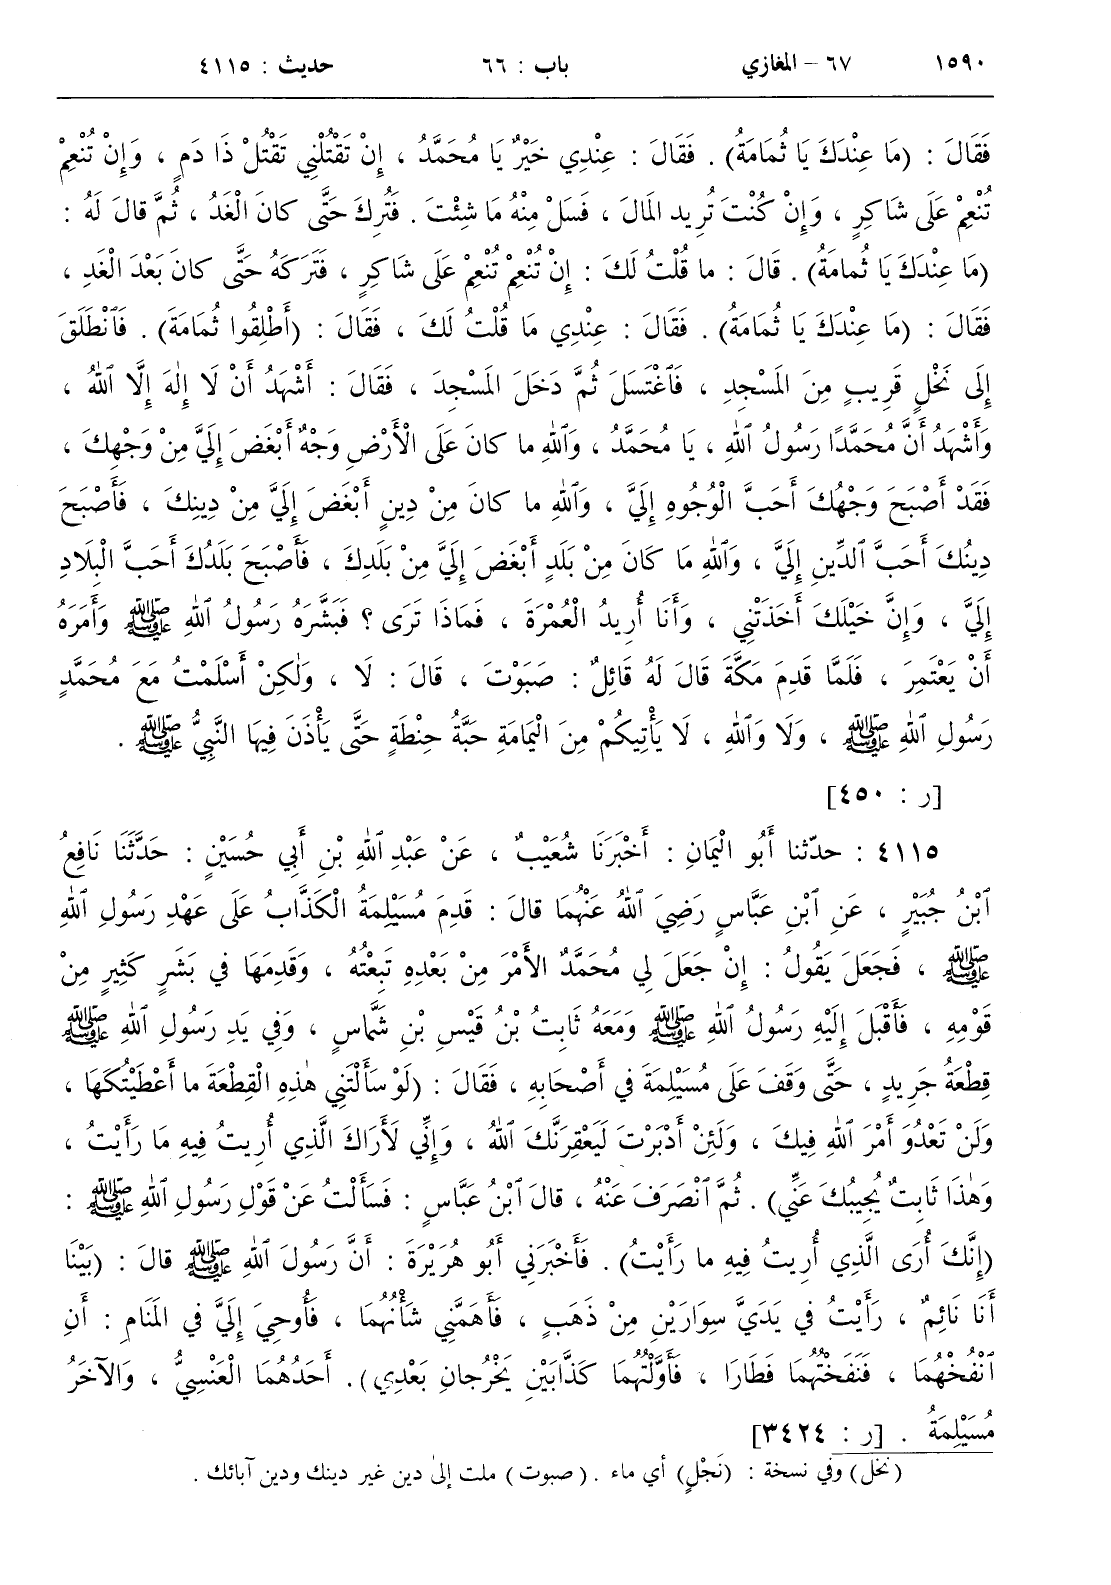 ١٥٩٠ ٦٧ – المغازي باب : ٦٦ حديث : ٤١١٥
فَقَالَ : (مَا عِنْدَكَ يَا ثُمَامَةُ) . فَقَالَ : عِنْدِي خَيْرٌ يَا مُحَمَّدُ ، إِنْ تَقْتُلْنِي تَقْتُلْ ذَا دَمٍ ، وَإِنْ تُنْعِمْ
تُنْعِمْ عَلَى شَاكِرٍ ، وَإِنْ كُنْتَ تُرِيد المَالَ ، فَسَلْ مِنْهُ مَا شِئْتَ . فَتُرِكَ حَتَّى كانَ الْغَدُ ، ثُمَّ قالَ لَهُ :
(مَا عِنْدَكَ يَا ثُمامَةُ) . قَالَ : ما قُلْتُ لَكَ : إِنْ تُنْعِمْ تُنْعِمْ عَلَى شَاكِرٍ ، فَتَرَكَهُ حَتَّى كانَ بَعْدَ الْغَدِ ،
فَقَالَ : (مَا عِنْدَكَ يَا ثُمَامَةُ) . فَقَالَ : عِنْدِي مَا قُلْتُ لَكَ ، فَقَالَ : (أَطْلِقُوا ثُمَامَةَ) . فَٱنْطَلَقَ
إِلَى نَخْلٍ قَرِيبٍ مِنَ المَسْجِدِ ، فَٱغْتَسَلَ ثُمَّ دَخَلَ المَسْجِدَ ، فَقَالَ : أَشْهَدُ أَنْ لَا إِلٰهَ إِلَّا ٱللهُ ،
وَأَشْهَدُ أَنَّ مُحَمَّدًا رَسُولُ ٱللهِ ، يَا مُحَمَّدُ ، وَٱللهِ ما كانَ عَلَى الْأَرْضِ وَجْهٌ أَبْغَضَ إِلَيَّ مِنْ وَجْهِكَ ،
فَقَدْ أَصْبَحَ وَجْهُكَ أَحَبَّ الْوُجُوهِ إِلَيَّ ، وَٱللهِ ما كانَ مِنْ دِينٍ أَبْغَضَ إِلَيَّ مِنْ دِينِكَ ، فَأَصْبَحَ
دِينُكَ أَحَبَّ ٱلدِّينِ إِلَيَّ ، وَٱللهِ مَا كَانَ مِنْ بَلَدٍ أَبْغَضَ إِلَيَّ مِنْ بَلَدِكَ ، فَأَصْبَحَ بَلَدُكَ أَحَبَّ الْبِلَادِ
إِلَيَّ ، وَإِنَّ خَيْلَكَ أَخَذَتْنِي ، وَأَنَا أُرِيدُ الْعُمْرَةَ ، فَمَاذَا تَرَى ؟ فَبَشَّرَهُ رَسُولُ ٱللهِ ﷺ وَأَمَرَهُ
أَنْ يَعْتَمِرَ ، فَلَمَّا قَدِمَ مَكَّةَ قَالَ لَهُ قَائِلٌ : صَبَوْتَ ، قَالَ : لَا ، وَلٰكِنْ أَسْلَمْتُ مَعَ مُحَمَّدٍ
رَسُولِ ٱللهِ ﷺ ، وَلَا وَٱللهِ ، لَا يَأْتِيكُمْ مِنَ الْيَمَامَةِ حَبَّةُ حِنْطَةٍ حَتَّى يَأْذَنَ فِيهَا النَّبِيُّ ﷺ .
[ر : ٤٥٠]
٤١١٥ : حدّثنا أَبُو الْيَمَانِ : أَخْبَرَنَا شُعَيْبٌ ، عَنْ عَبْدِ ٱللهِ بْنِ أَبِي حُسَيْنٍ : حَدَّثَنَا نَافِعُ
ٱبْنُ جُبَيْرٍ ، عَنِ ٱبْنِ عَبَّاسٍ رَضِيَ ٱللهُ عَنْهُمَا قالَ : قَدِمَ مُسَيْلِمَةُ الْكَذَّابُ عَلَى عَهْدِ رَسُولِ ٱللهِ
ﷺ ، فَجَعَلَ يَقُولُ : إِنْ جَعَلَ لِي مُحَمَّدٌ الأَمْرَ مِنْ بَعْدِهِ تَبِعْتُهُ ، وَقَدِمَهَا فِي بَشَرٍ كَثِيرٍ مِنْ
قَوْمِهِ ، فَأَقْبَلَ إِلَيْهِ رَسُولُ ٱللهِ ﷺ وَمَعَهُ ثَابِتُ بْنُ قَيْسِ بْنِ شَمَّاسٍ ، وَفِي يَدِ رَسُولِ ٱللهِ ﷺ
قِطْعَةُ جَرِيدٍ ، حَتَّى وَقَفَ عَلَى مُسَيْلِمَةَ فِي أَصْحَابِهِ ، فَقَالَ : (لَوْ سَأَلْتَنِي هٰذِهِ الْقِطْعَةَ ما أَعْطَيْتُكَهَا ،
وَلَنْ تَعْدُوَ أَمْرَ ٱللهِ فِيكَ ، وَلَئِنْ أَدْبَرْتَ لَيَعْقِرَنَّكَ ٱللهُ ، وَإِنِّي لَأَرَاكَ الَّذِي أُرِيتُ فِيهِ مَا رَأَيْتُ ،
وَهٰذَا ثَابِتٌ يُجِيبُكَ عَنِّي) . ثُمَّ ٱنْصَرَفَ عَنْهُ ، قالَ ٱبْنُ عَبَّاسٍ : فَسَأَلْتُ عَنْ قَوْلِ رَسُولِ ٱللهِ ﷺ :
(إِنَّكَ أُرَى الَّذِي أُرِيتُ فِيهِ ما رَأَيْتُ) . فَأَخْبَرَنِي أَبُو هُرَيْرَةَ : أَنَّ رَسُولَ ٱللهِ ﷺ قالَ : (بَيْنَا
أَنَا نَائِمٌ ، رَأَيْتُ فِي يَدَيَّ سِوَارَيْنِ مِنْ ذَهَبٍ ، فَأَهَمَّنِي شَأْنُهُمَا ، فَأُوحِيَ إِلَيَّ فِي المَنَامِ : أَنِ
ٱنْفُخْهُمَا ، فَنَفَخْتُهُمَا فَطَارَا ، فَأَوَّلْتُهُمَا كَذَّابَيْنِ يَخْرُجانِ بَعْدِي) . أَحَدُهُمَا الْعَنْسِيُّ ، وَالآخَرُ
مُسَيْلِمَةُ . [ر : ٣٤٢٤]
(نخل) وفي نسخة : (نَجْلٍ) أي ماء . (صبوت) ملت إلىٰ دين غير دينك ودين آبائك .